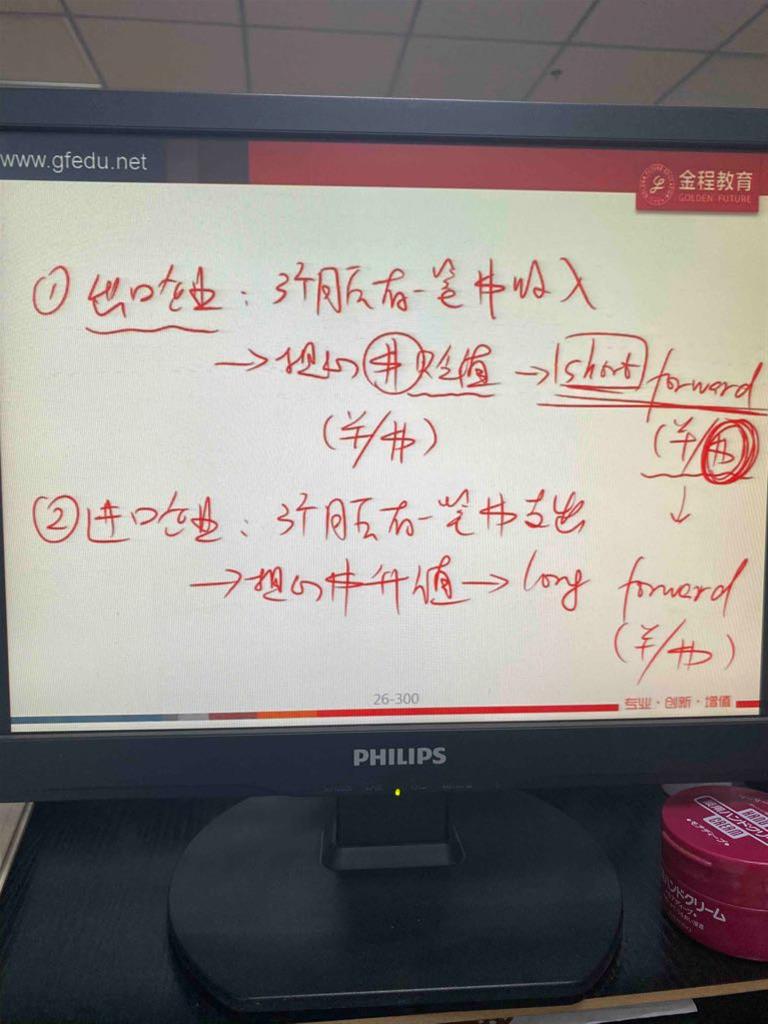 www.gfedu.net
金程教育
GOLDEN FUTURE
① 出口企业：3个月后有一笔$收入
→担心$贬值→short forward
(¥/$) (¥/$)
② 进口企业：3个月后有一笔$支出 ↓
→担心$升值→long forward
(¥/$)
26-300
专业·创新·增值
PHILIPS
HAND
CREAM
ハンドクリーム